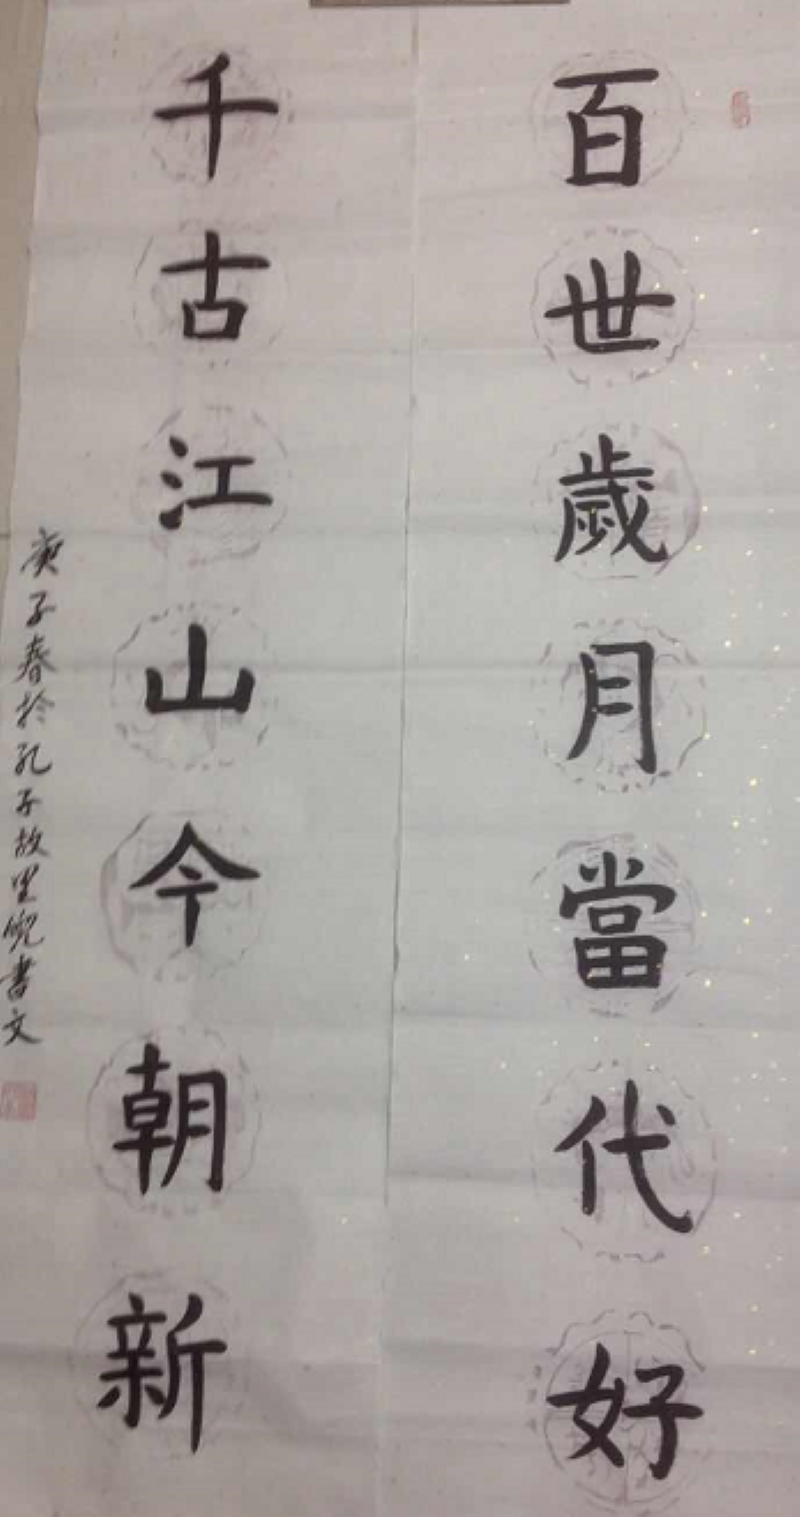 百世歲月當代好
千古江山今朝新
庚子春於孔子故里倪書文